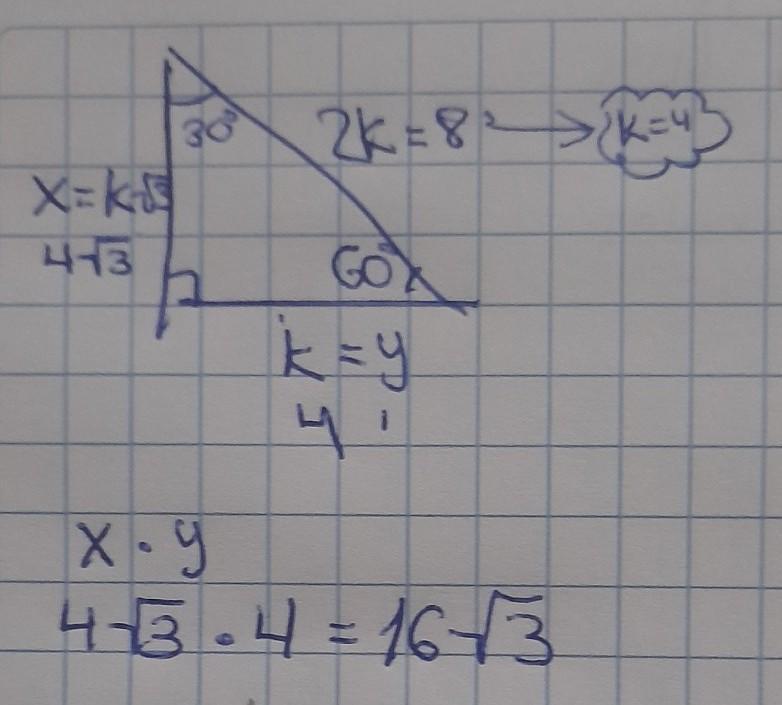 30°
2k = 8 → k=4
x = k√3
4√3
60°
k = y
4
x · y
4√3 · 4 = 16√3